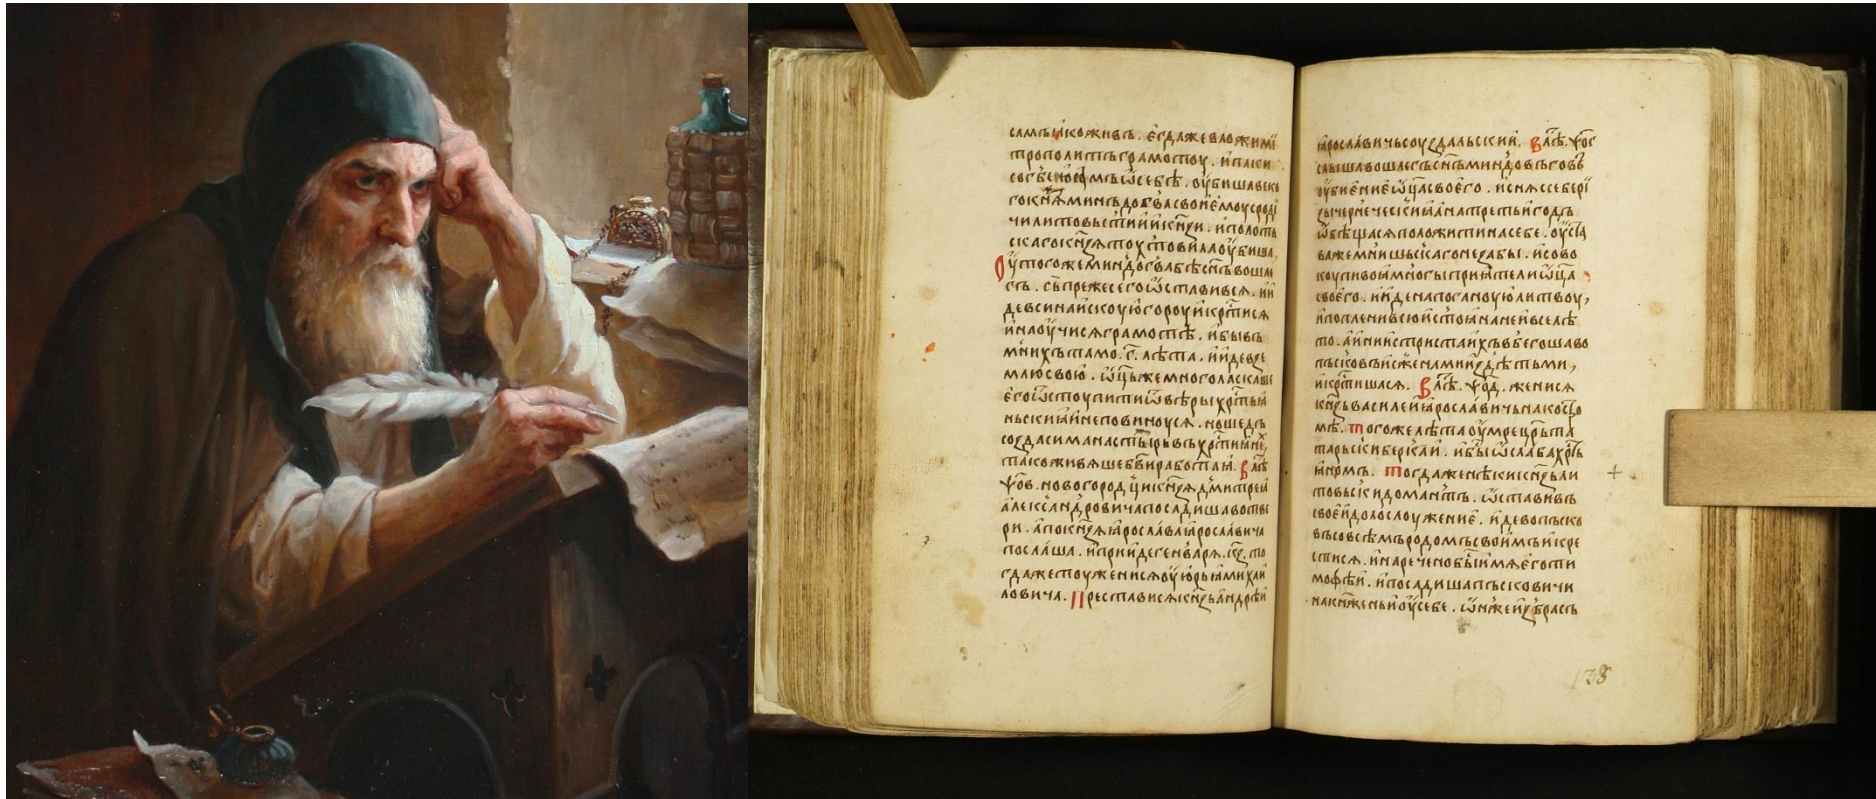 самъ ꙗко живъ . егда же вложи мі
трополитъ грамотоу . и паки
ѿ себѣ . оубиша
го кн҃зѧ миндовга свои емоу сроді
чи литовьстии кн҃зи . и полоть
скаго кн҃зѧ оубиша
Оу того же миндовга бѣ сн҃ъ вошел
гъ . сь преже сего ѿставивсѧ . ии
де в синайскоую гороу и крт҃исѧ
и наоучисѧ грамотѣ . и бывъ
мнихъ тамо . г҃ . лѣта . и иде в зе
млю свою . ѿц҃ь же много ласкаше
его ѿстоупити ѿ вѣры хрт҃ьꙗ
ньскиꙗ и не повиноусѧ . но шедъ
созда си манастырь въ
тако живѧше бв҃и работаꙗ . В лѣ
ѱ҃ов . новогородци кн҃зѧ дмитреꙗ
александровича посадиша во тве
ри . а по кн҃зѧ ꙗрослава ꙗрославича
послаша . и прииде генварѧ . то
гда же тоу женисѧ оу юрьꙗ михаи
ловича . Престависѧ кн҃зь андрѣи
ꙗрославичь соуздальский . В лѣ . ѱ҃ог
слышавъ сн҃ъ миндовьговъ
оубиение ѿц҃а своего . и снѧ с себе рі
зы чернеческиꙗ на третьи годъ
ѿбѣщасѧ положити на себе .
важе мнишьскаго не рабы . и сово
коупи воꙗ многы приꙗтели ѿц҃а
своего . и иде на поганоую литвоу ,
и поплени всю и стоꙗ на ней все лѣ
то . а инии ст҃и их въбегоша во
пьсковъ и с женами и з дѣтьми ,
и крт҃ишасѧ . В лѣ . ѱ҃од . женисѧ
кн҃зь василей ꙗрославичь на костро
мѣ . того же лѣта оумре цр҃ь та
тарьски беркаи . и бы ѿслаба хрт҃ь
ꙗномъ . тогда же нѣкии кн҃зь ли
товьски домантъ . ѿставивъ
свое идолослоужение . иде во пьско
въ со всѣмъ родомъ своимъ и кре
стисѧ . и наречено бы имѧ его ти
мофѣи . и посадиша пьсковичи
на кнѧженьи оу себе . ѿн же избравъ
138